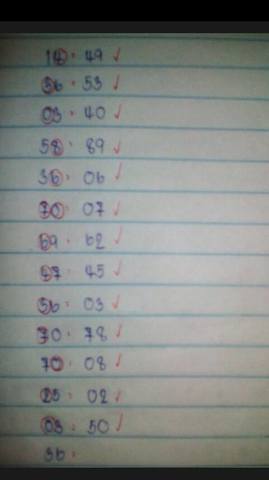 14 = 49 ✓
56 = 53 ✓
03 = 40 ✓
58 = 89 ✓
36 = 06 ✓
70 = 07 ✓
69 = 62 ✓
47 = 45 ✓
56 = 03 ✓
70 = 78 ✓
70 = 08 ✓
25 = 02 ✓
03 = 50 ✓
36 =